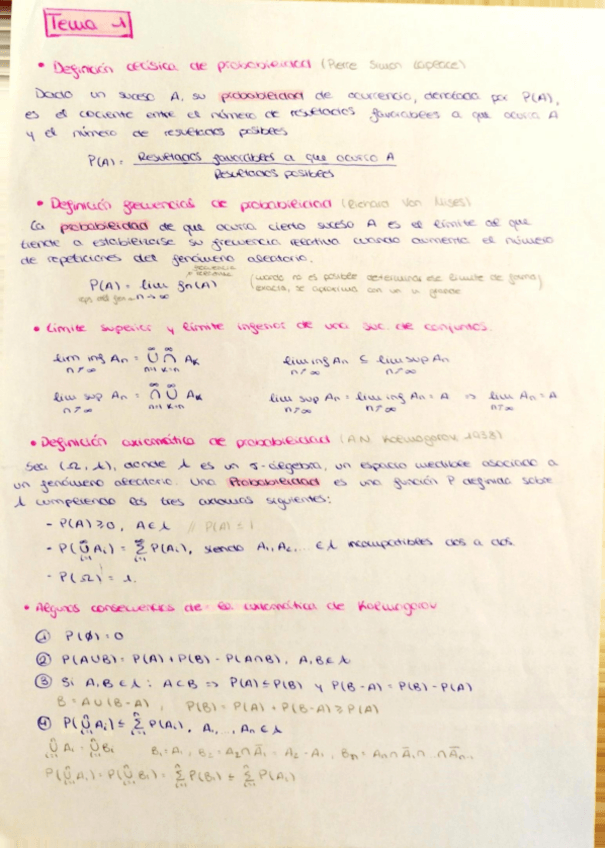 Tema 1
• Definición clásica de probabilidad (Pierre Simon Laplace)
Dado un suceso A, su probabilidad de ocurrencia, denotada por P(A),
es el cociente entre el número de resultados favorables a que ocurra A
y el número de resultados posibles
P(A) = Resultados favorables a que ocurra A
Resultados posibles
• Definición frecuencias de probabilidad (Richard Von Mises)
La probabilidad de que ocurra cierto suceso A es el límite al que
tiende a establecerse su frecuencia relativa cuando aumenta el número
de repeticiones del fenómeno aleatorio.
frecuencia
P(A) = lim fn(A) (cuando no es posible determinar ese límite de forma
n→∞ exacta, se aproxima con un n grande)
• Límite superior y límite inferior de una suc. de conjuntos.
lim inf An = ∞∪n=1 ∞∩k=n Ak lim inf An ≤ lim sup An
n→∞ n→∞ n→∞
lim sup An = ∞∩n=1 ∞∪k=n Ak lim sup An = lim inf An = A ⇒ lim An = A
n→∞ n→∞ n→∞ n→∞
• Definición axiomática de probabilidad (A.N. Kolmogorov 1938)
Sea (Ω, A), donde A es un σ-álgebra, un espacio medible asociado a
un fenómeno aleatorio. Una Probabilidad es una función P definida sobre
A cumpliendo los tres axiomas siguientes:
- P(A) ≥ 0, A∈A // P(A) ≤ 1
- P(∞∪i=1 Ai) = ∞Σi=1 P(Ai), siendo A1, A2, ... ∈ A incompatibles dos a dos.
- P(Ω) = 1.
• Algunas consecuencias de la axiomática de Kolmogorov
① P(∅) = 0
② P(A∪B) = P(A) + P(B) - P(A∩B), A,B∈A
③ Si A,B∈A : A⊂B ⇒ P(A) ≤ P(B) y P(B-A) = P(B) - P(A)
B = A∪(B-A), P(B) = P(A) + P(B-A) ≥ P(A)
④ P(n∪i=1 Ai) ≤ nΣi=1 P(Ai), A1, ..., An ∈ A
n∪i=1 Ai = n∪i=1 Bi B1 = A1, B2 = A2∩Ā1 = A2 - A1, Bn = An∩Ā1∩...∩Ān-1
P(n∪i=1 Ai) = P(n∪i=1 Bi) = nΣi=1 P(Bi) ≤ nΣi=1 P(Ai)